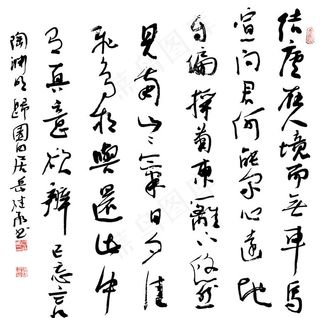 結廬在人境而無車馬
喧問君何能爾心遠地
自偏採菊東籬下悠然
見南山山氣日夕佳
飛鳥相與還此中
有真意欲辨已忘言
陶淵明歸園田居